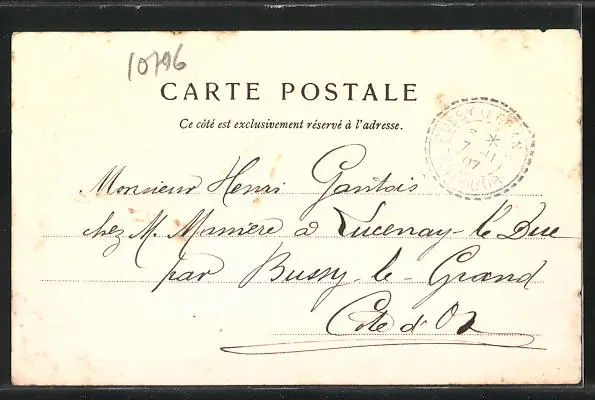 10796
CARTE POSTALE
Ce côté est exclusivement réservé à l'adresse.
Monsieur Henri Gantois
chez M. Manière à Lucenay-le Duc
par Bussy-le-Grand
Côte d'Or